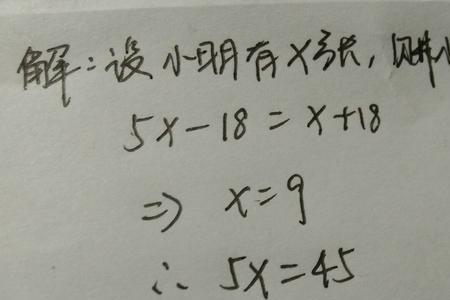 解：设小明有x张，则
5x-18=x+18
⇒ x=9
∴ 5x=45